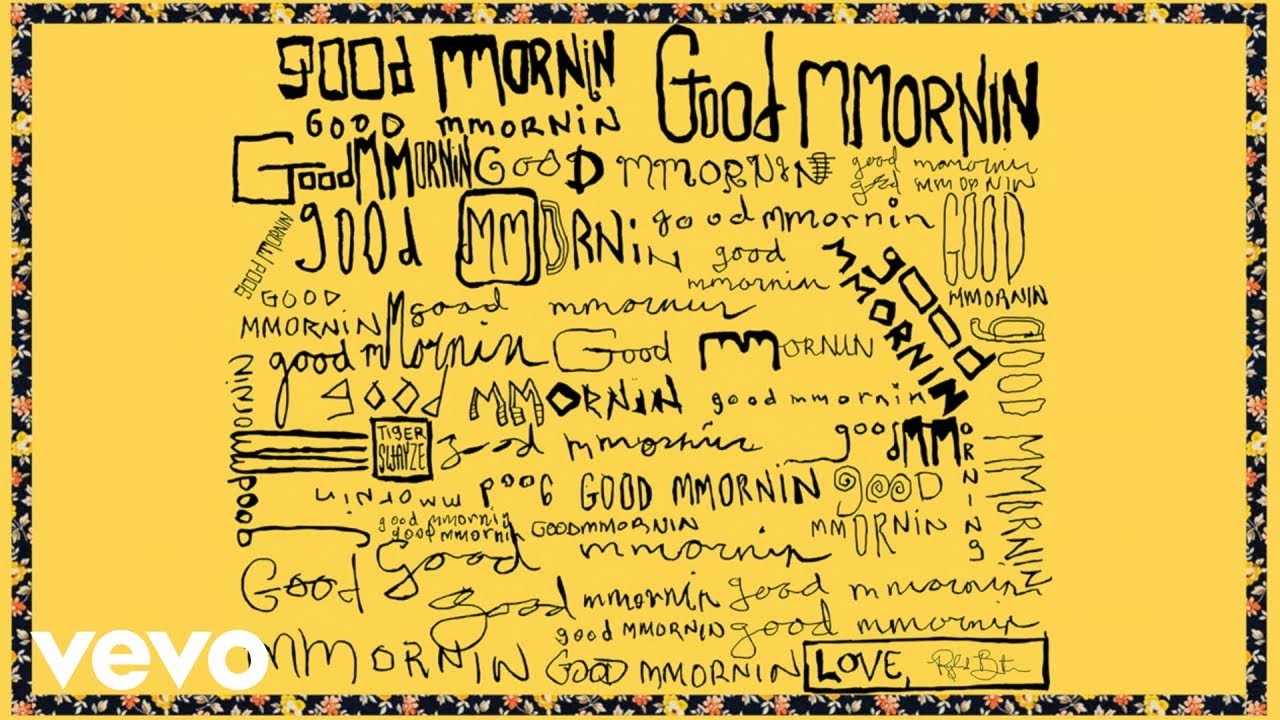 good MMORNIN
Good MMORNIN
GOOD MMORNIN
Good MMORNIN
GOOD MMORNIN
good mmornin
good
MMORNIN
good MMORNIN
good MMORNIN
good mmornin
good
mmornin
GOOD
MMORNIN
good
MMORNIN
GOOD
MMORNIN
good mmornin
good mMornin
Good MMORNIN
good MMORNIN
good MMORNIN
good mmornin
good mmornin
TIGER
SWAYZE
good mmornin
good MMORNING
good mmornin
GOOD MMORNIN
good
MMORNIN
good mmornin
good mmornin
GOOD MMORNIN
Good mmornin
Good
MMORNIN
good mmornin
good mmornin
good MMORNIN
good mmornin
GOOD MMORNIN
LOVE,
vevo